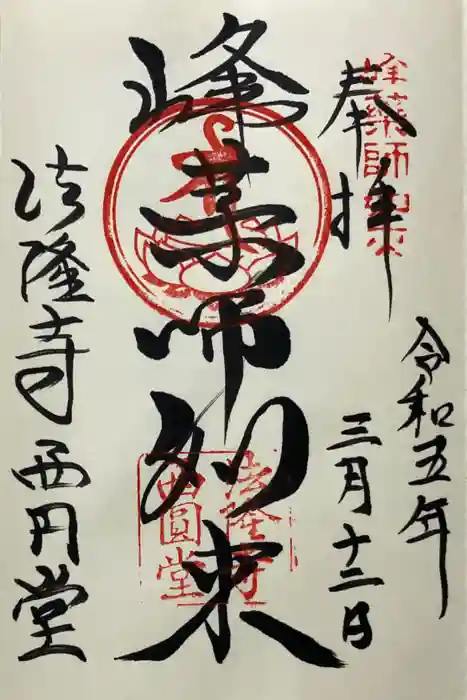 峰薬師如来
奉拝
令和五年
三月十二日
峰薬師如来
法隆寺
西圓堂
法隆寺西円堂